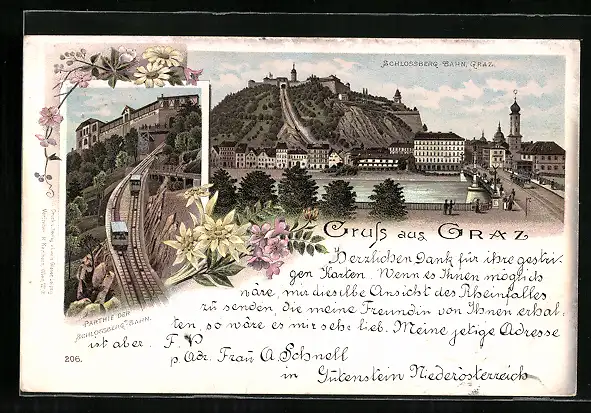 SCHLOSSBERG-BAHN, GRAZ.
Gruss aus GRAZ
PARTHIE DER
SCHLOSSBERG-BAHN.
206.
Herzlichen Dank für ihre gestri-
gen Karten. Wenn es Ihnen möglich
wäre, mir dieselbe Ansicht des Rheinfalles
zu senden, die meine Freundin von Ihnen erhal-
ten, so wäre es mir sehr lieb. Meine jetige Adresse
ist aber. F. P
p. Adr. Frau A. Schnell
in Gutenstein Niederösterreich